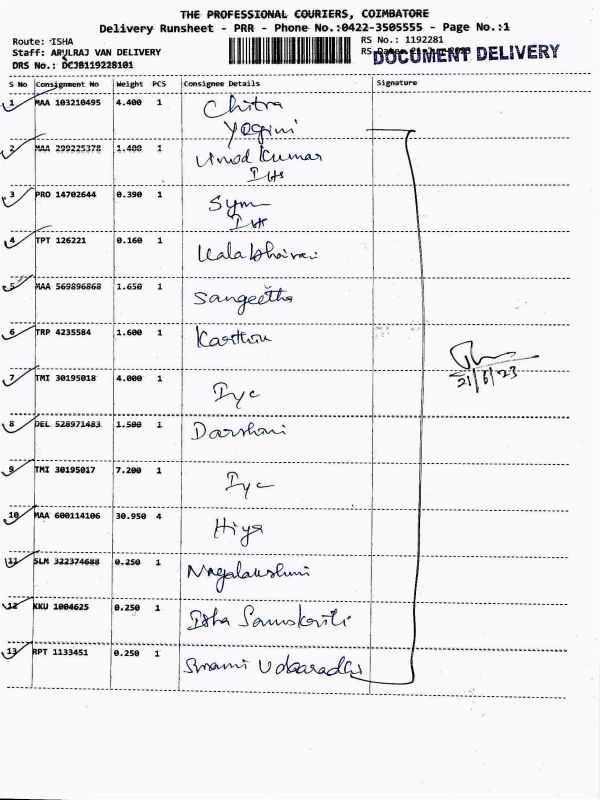 THE PROFESSIONAL COURIERS, COIMBATORE
Delivery Runsheet - PRR - Phone No.:0422-3505555 - Page No.:1
Route: ISHA
RS No.: 1192281
Staff: ARULRAJ VAN DELIVERY
DOCUMENT DELIVERY
DRS No.: DCJB119228101
S No Consignment No Weight PCS Consignee Details Signature
1 MAA 103210495 4.400 1 Chitra
Yogini
2 MAA 299225378 1.400 1 Vinod Kumar
IHS
3 PRO 14702644 0.390 1 Sym
IHS
4 TPT 126221 0.160 1 Kalabhairavi
5 MAA 569896868 1.650 1 Sangeetha
6 TRP 4235584 1.600 1
7 TMI 30195018 4.000 1 Iyc
21/6/23
8 DEL 528971483 1.500 1 Darshni
9 TMI 30195017 7.200 1 Iyc
10 MAA 600114106 30.950 4 Hiya
11 SLM 322374688 0.250 1 Nagalakshmi
12 KKU 1004625 0.250 1 Isha Samskriti
13 RPT 1133451 0.250 1 Swami